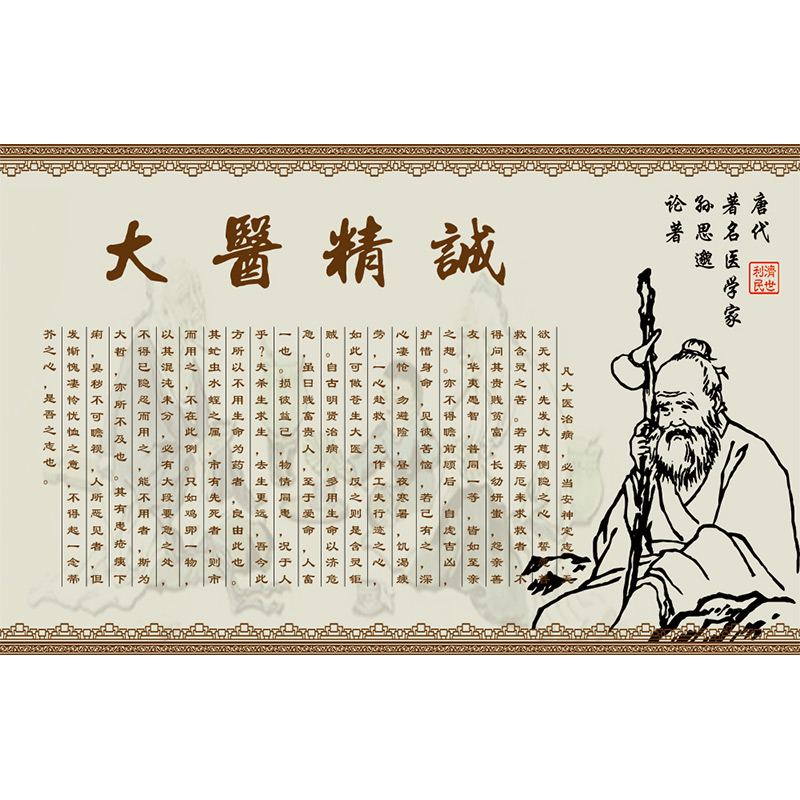 大醫精誠
唐代
著名医学家
孙思邈
论著
濟世利民
凡大医治病，必当安神定志，无
欲无求，先发大慈恻隐之心，誓
救含灵之苦。若有疾厄来求救者，不
得问其贵贱贫富，长幼妍蚩，怨亲善
友，华夷愚智，普同一等，皆如至亲
之想。亦不得瞻前顾后，自虑吉凶，
护惜身命，见彼苦恼，若己有之，深
心凄怆，勿避险，昼夜寒暑，饥渴疲
劳，一心赴救，无作工夫行迹之心，
如此可做苍生大医，反之则是含灵钜
贼。自古明贤治病，多用生命以济危
急，虽曰贱富贵人，至于爱命，人富
一也。损彼益己，物情同患，况于人
乎？夫杀生求生，去生更远，吾今此
方所以不用生命为药者，良由此也。
其虻虫水蛭之属，市有先死者，则市
而用之，不在此例。只如鸡卵一物，
以其混沌未分，必有大段要急之处，
不得已隐忍而用之，能不用者，斯为
大哲，亦所不及也。其有患疮痍下
痢，臭秽不可瞻视，人所恶见者，但
发惭愧凄怜忧恤之意，不得起一念蒂
芥之心，是吾之志也。